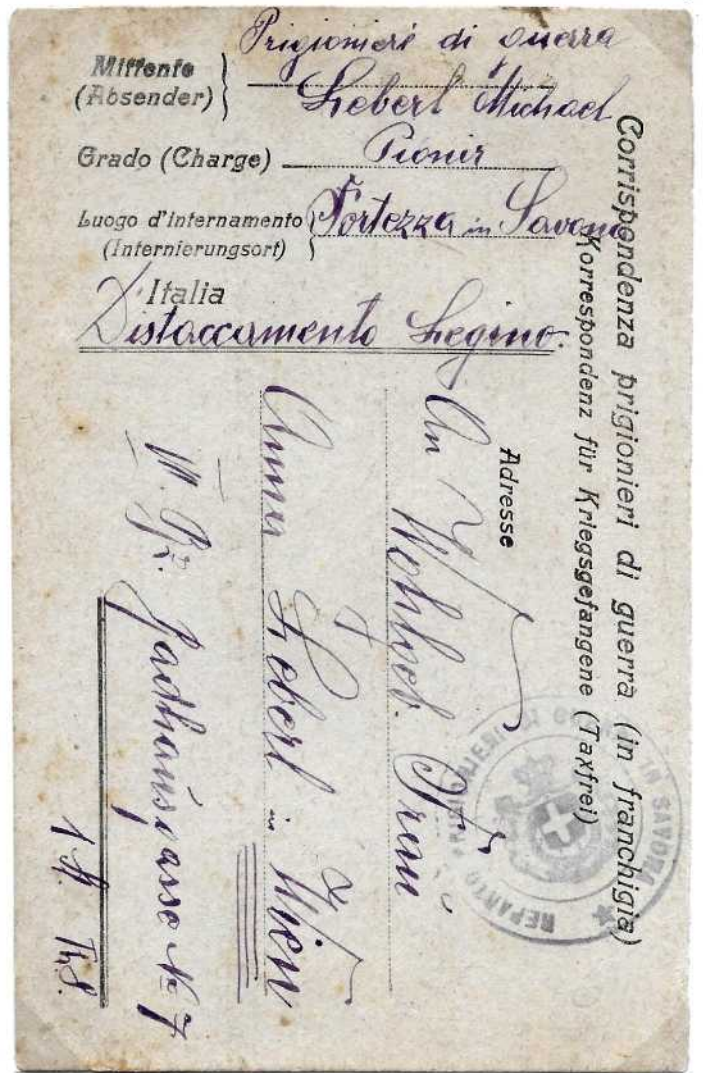 Prigionieri di guerra
Mittente
(Absender)
Leberl Michael
Grado (Charge) Pionir
Luogo d'internamento
(Internierungsort)
Fortezza in Savona
Italia
Distaccamento Legino.
Corrispondenza prigionieri di guerra (in franchigia)
Korrespondenz für Kriegsgefangene (Taxfrei)
Adresse
An
Frau
Anna Leberl in Wien
gasse No 7
REPARTO PRIGIONIERI DI GUERRA IN SAVONA